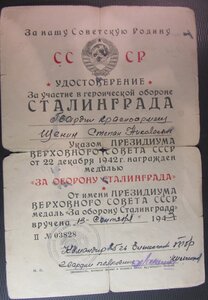 За нашу Советскую Родину
СС СР
УДОСТОВЕРЕНИЕ
За участие в героической обороне
СТАЛИНГРАДА
Гвардии красноармеец
Щенин Степан
Указом ПРЕЗИДИУМА
ВЕРХОВНОГО СОВЕТА СССР
от 22 декабря 1942 г. награжден
медалью
«ЗА ОБОРОНУ СТАЛИНГРАДА»
От имени ПРЕЗИДИУМА
ВЕРХОВНОГО СОВЕТА СССР
медаль «За оборону Сталинграда»
вручена 194
П № 03828
гвардии полковник